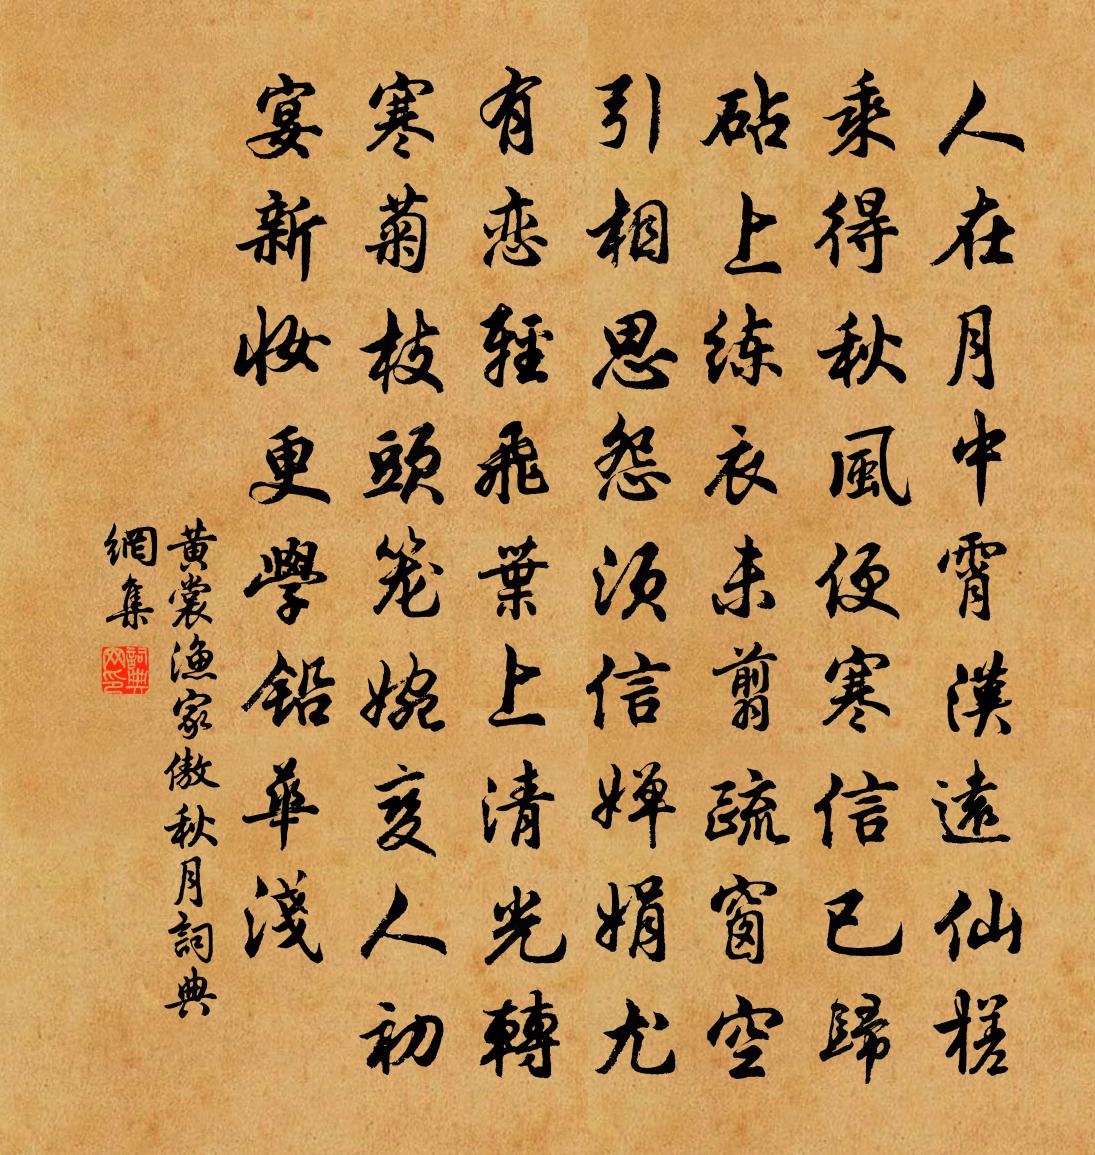 人在月中霄漢遠仙槎
乘得秋風便寒信已歸
砧上练衣未翦疏窗空
引相思怨须信嬋娟尤
有恋輕飛葉上清光轉
寒菊枝頭笼婉变人初
宴新妆更學鉛華淺
黄裳漁家傲秋月詞典
網集
詞典
网印